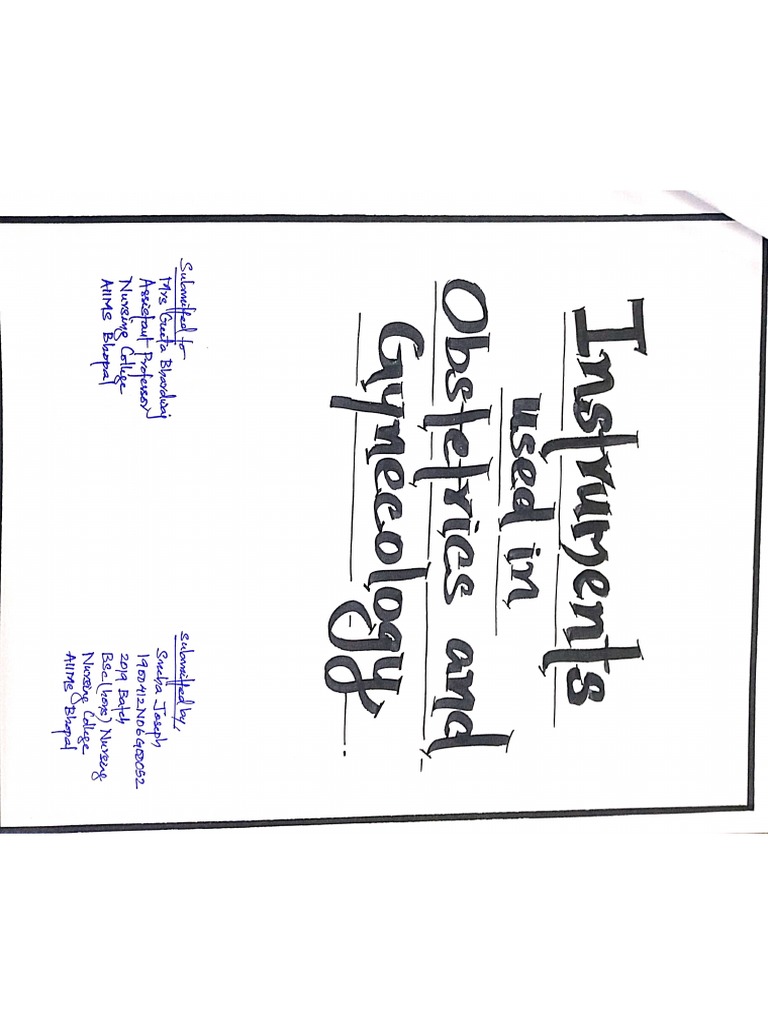 Instruments
used in
Obstetrics and
Gynecology.
Submitted to
Mrs Geeta Bhardwaj
Assistant Professor
Nursing College
AIIMS Bhopal
Submitted by,
Sneha Joseph
2019 Batch
BSc (hons) Nursing
Nursing College
AIIMS Bhopal